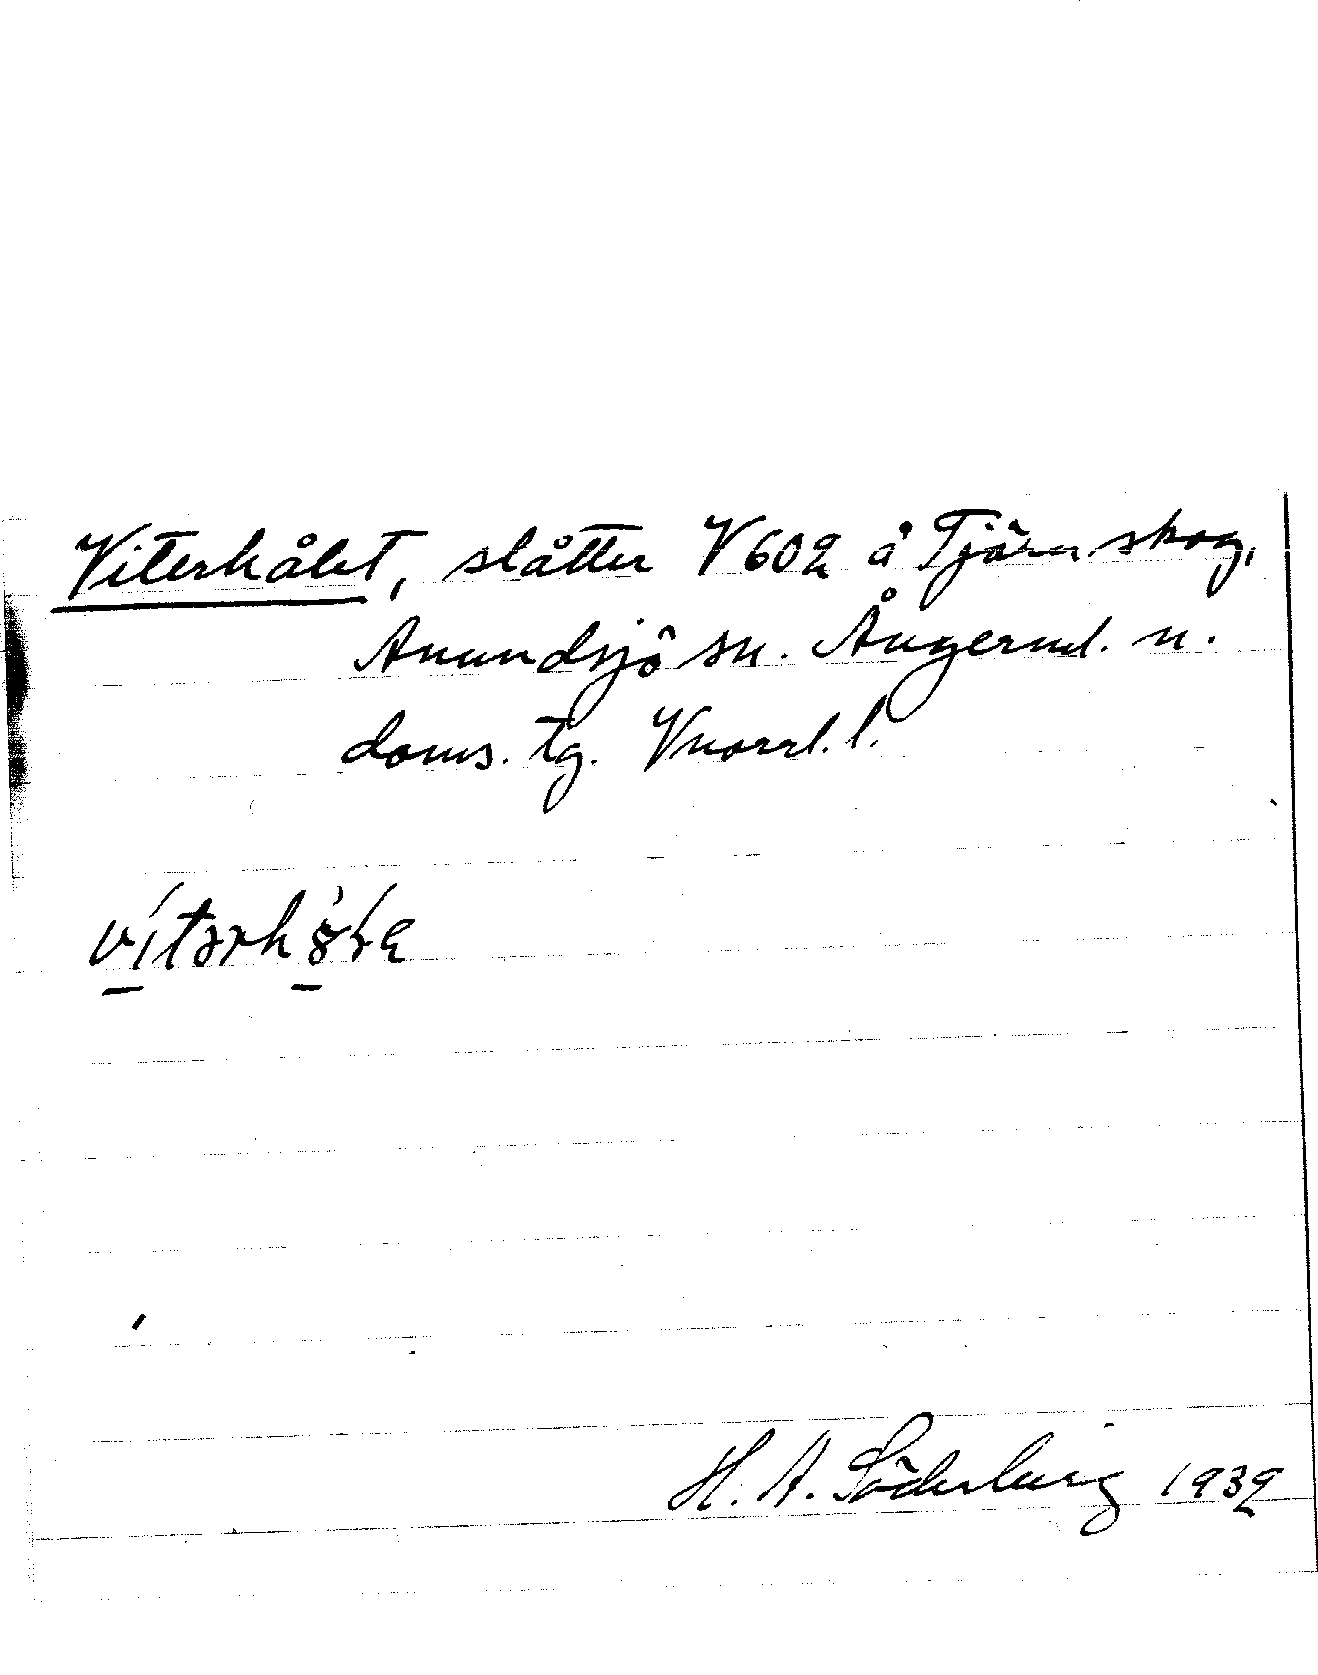 Viterhålet, slåtter V 602 å Tjärnskog,
Anundsjö sn. Ångerml. n.
doms. tg. Vnorrl. l.
H. A. Söderberg 1939